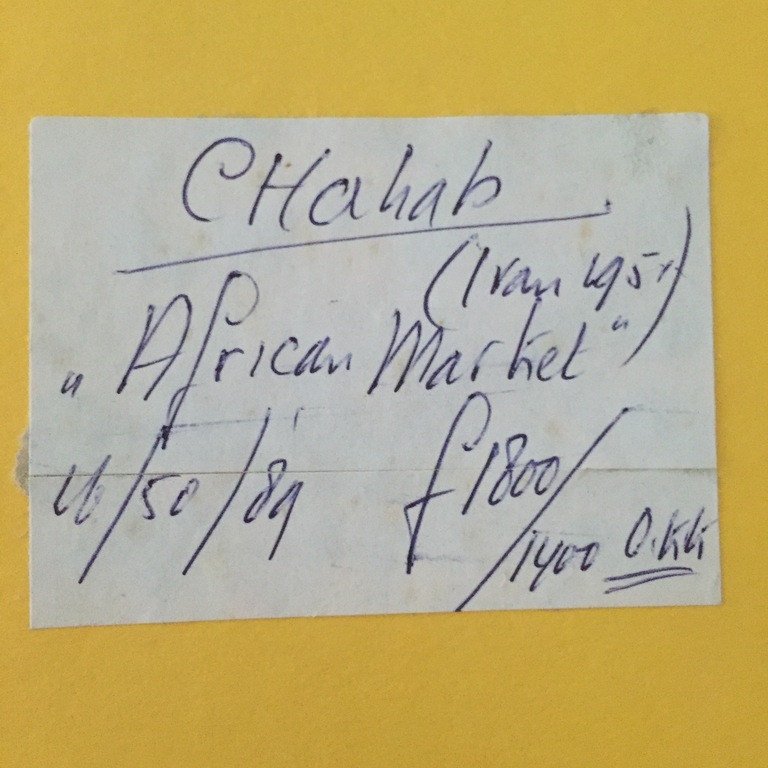 CHahab
(Iran 195
„African Market"
/50/89 £1800/
1400 O.K